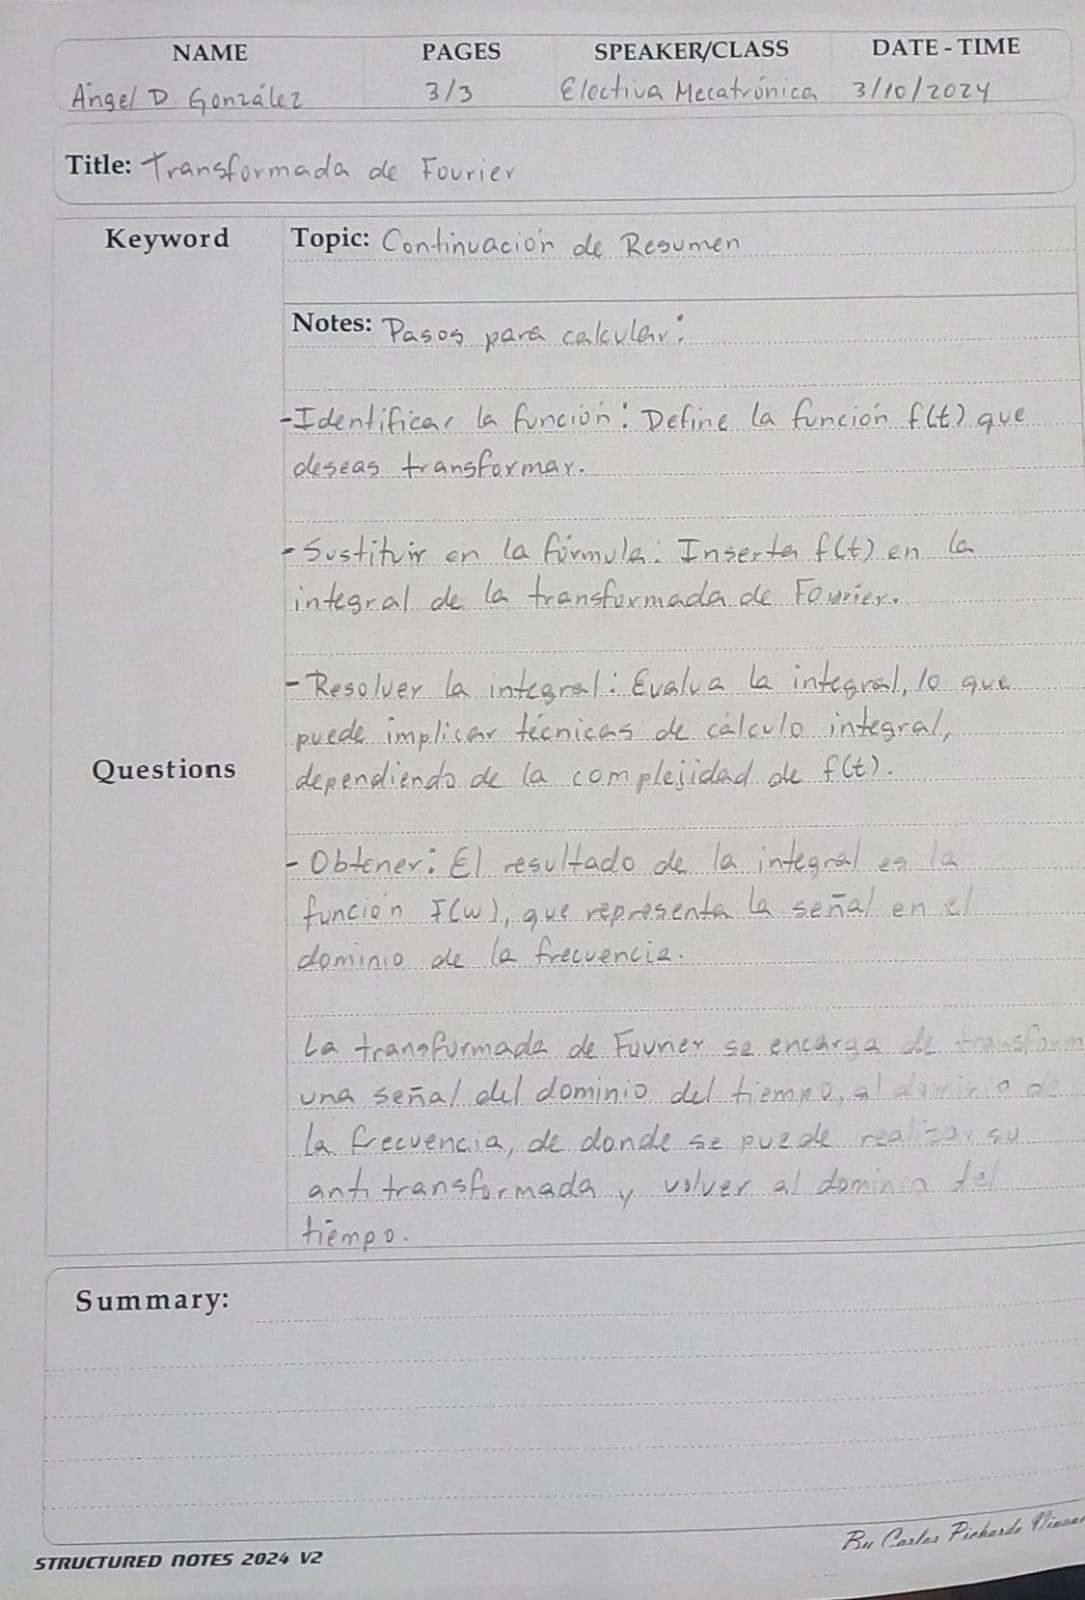 NAME PAGES SPEAKER/CLASS DATE - TIME
Ángel D. González 3/3 Electiva Mecatrónica 3/10/2024
Title: Transformada de Fourier
Keyword Topic: Continuación de Resumen
Notes: Pasos para calcular:
-Identificar la función: Define la función f(t) que
deseas transformar.
-Sustituir en la fórmula: Inserta f(t) en la
integral de la transformada de Fourier.
-Resolver la integral: Evalua la integral, lo que
puede implicar técnicas de cálculo integral,
Questions dependiendo de la complejidad de f(t).
-Obtener: El resultado de la integral es la
función F(w), que representa la señal en el
dominio de la frecuencia.
La transformada de Fourier se encarga de transform
una señal del dominio del tiempo, al dominio de
la frecuencia, de donde se puede realizar su
antitransformada y volver al dominio del
tiempo.
Summary:
By Carlos Pichardo
STRUCTURED NOTES 2024 V2